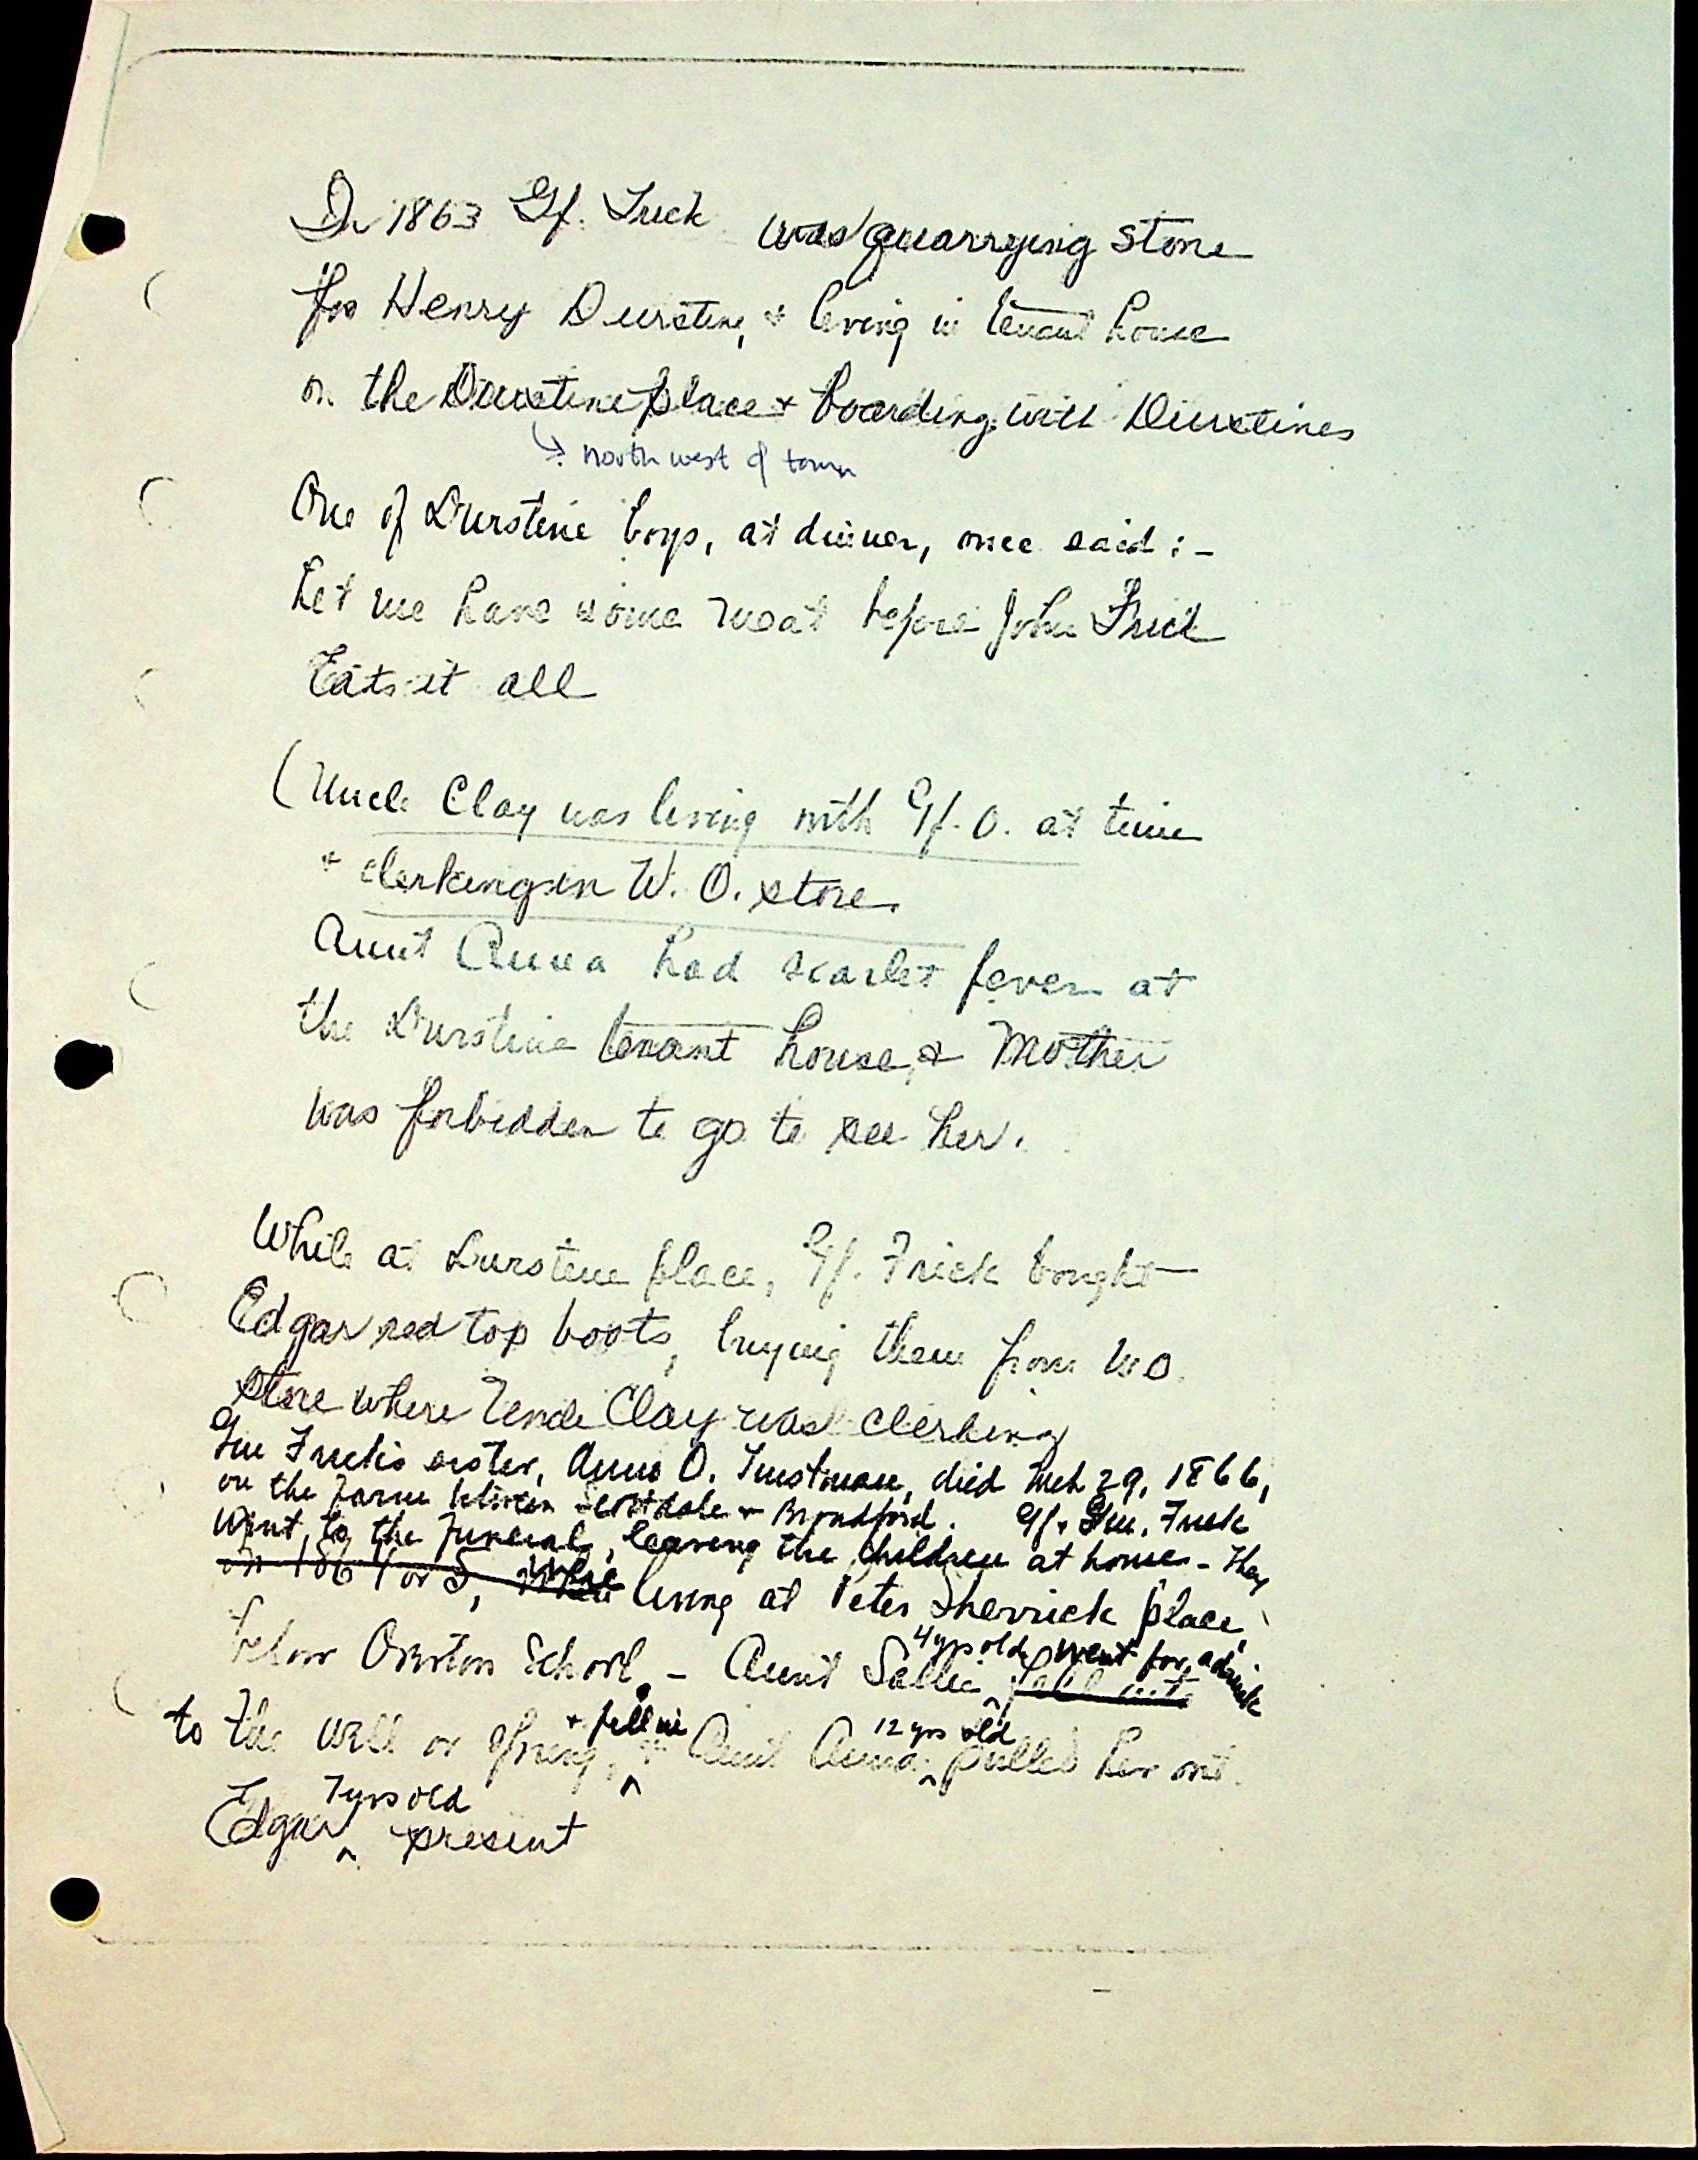 In 1863 Gf. Frick was quarrying stone
for Henry Durstine, + living in tenant house
on the Durstine place + boarding with Durstines
north west of town
One of Durstine boys, at dinner, once said : -
Let me have some meat before John Frick
Eats it all
(Uncle Clay was living with Gf. O. at time
+ clerking in W. O. store.
Aunt Anna had scarlet fever at
the Durstine tenant house, & Mother
was forbidden to go to see her.
While at Durstine place, Gf. Frick bought
Edgar red top boots, buying them from W O.
store where Uncle Clay was clerking
Gm Frick's sister, Anna O. Tinstman, died Mch 29, 1866,
on the farm between Scottdale + Broadford. Gf + Gm. Frick
went to the funeral, leaving the children at home - They
in 1864 or 5, while living at Peter Sherrick place,
below Overton School. - Aunt Sallie 4 yrs old, went for a drink fell into
to the well or spring, + fell in + Aunt Anna 12 yrs old pulled her out.
Edgar 7 yrs old present